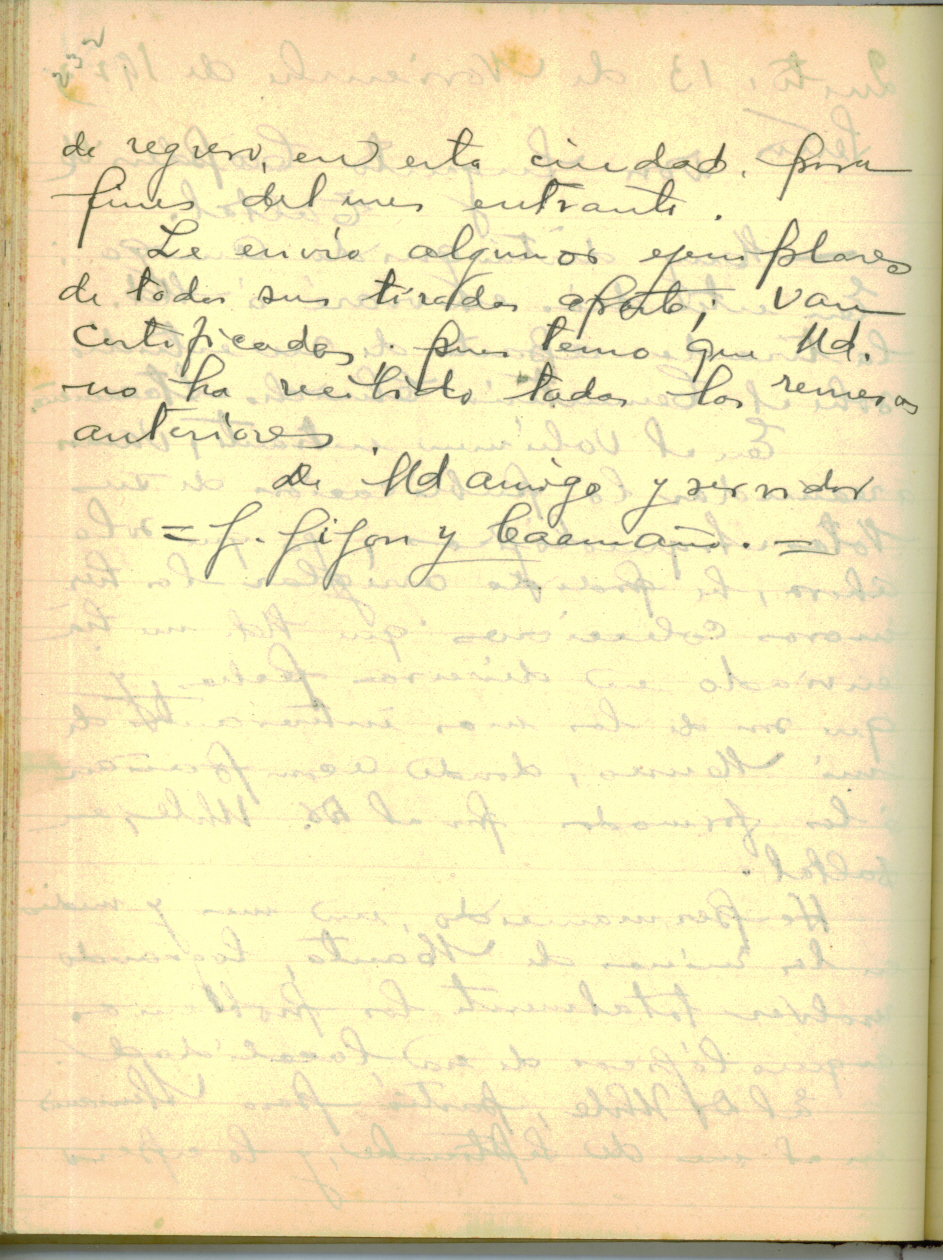 232
de regreso, en esta ciudad, para
fines del mes entrante.
Le envio algunos ejemplares
de todas sus tiradas aparte; van
certificadas, pues temo que Ud.
no ha recibido todas las remesas
anteriores.
De Ud amigo y servidor
= J. Jijon y Caamaño. =